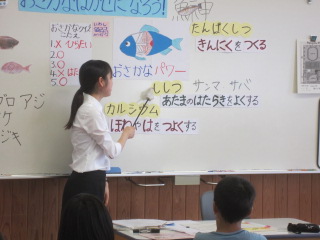 おさかなはかせになろう!
おさかなクイズ
こたえ
1.× ひらたい
2.○
3.○
4.×
5.○
おさかなパワー
たんぱくしつ
きんにくをつくる
ししつ サンマ サバ
あたまのはたらきをよくする
カルシウム
ほねやはをつよくする
グロ アジ
ケ
ジキ